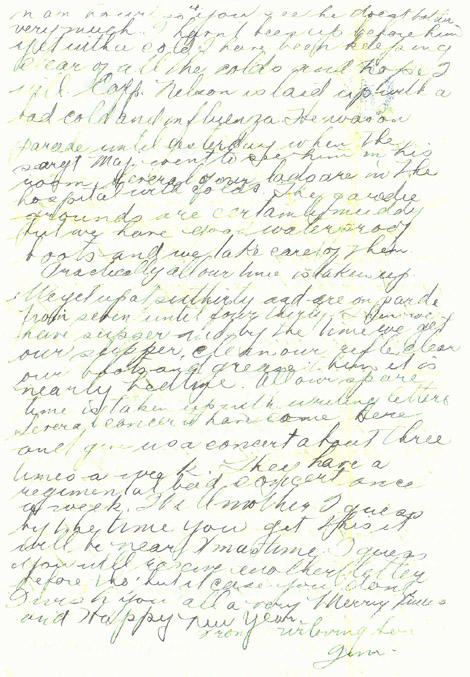 now you see he doesnt bother
very much. I dont keep up before him
yet with a cold. I have been keeping
clear of all the colds and hope I
still. Corp. Nelson is laid up with a
bad cold and influenza. He was on
parade until yesterday when the
sargt Maj. went to see him in his
room. Several of our lads are in the
hospital with colds. The parade
grounds are certainly muddy
but we have good waterproof
boots and we take care of them.
Practically all our time is taken up.
We get up at six thirty and are on parade
from seven until four thirty. Then we
have supper and by the time we get
our supper, clean our rifle, clean
our boots and grease them it is
nearly bedtime. All our spare
time is taken up with writing letters
Several concerts have come here
and give us a concert about three
times a week. They have a
regimental band concert once
a week. Well Mother I guess
by the time you get this it
will be near Xmas time. I guess
you will receive another letter
before tho' but in case you dont
I wish you all a very Merry Xmas
and Happy New Year
From your loving Son
Jim.